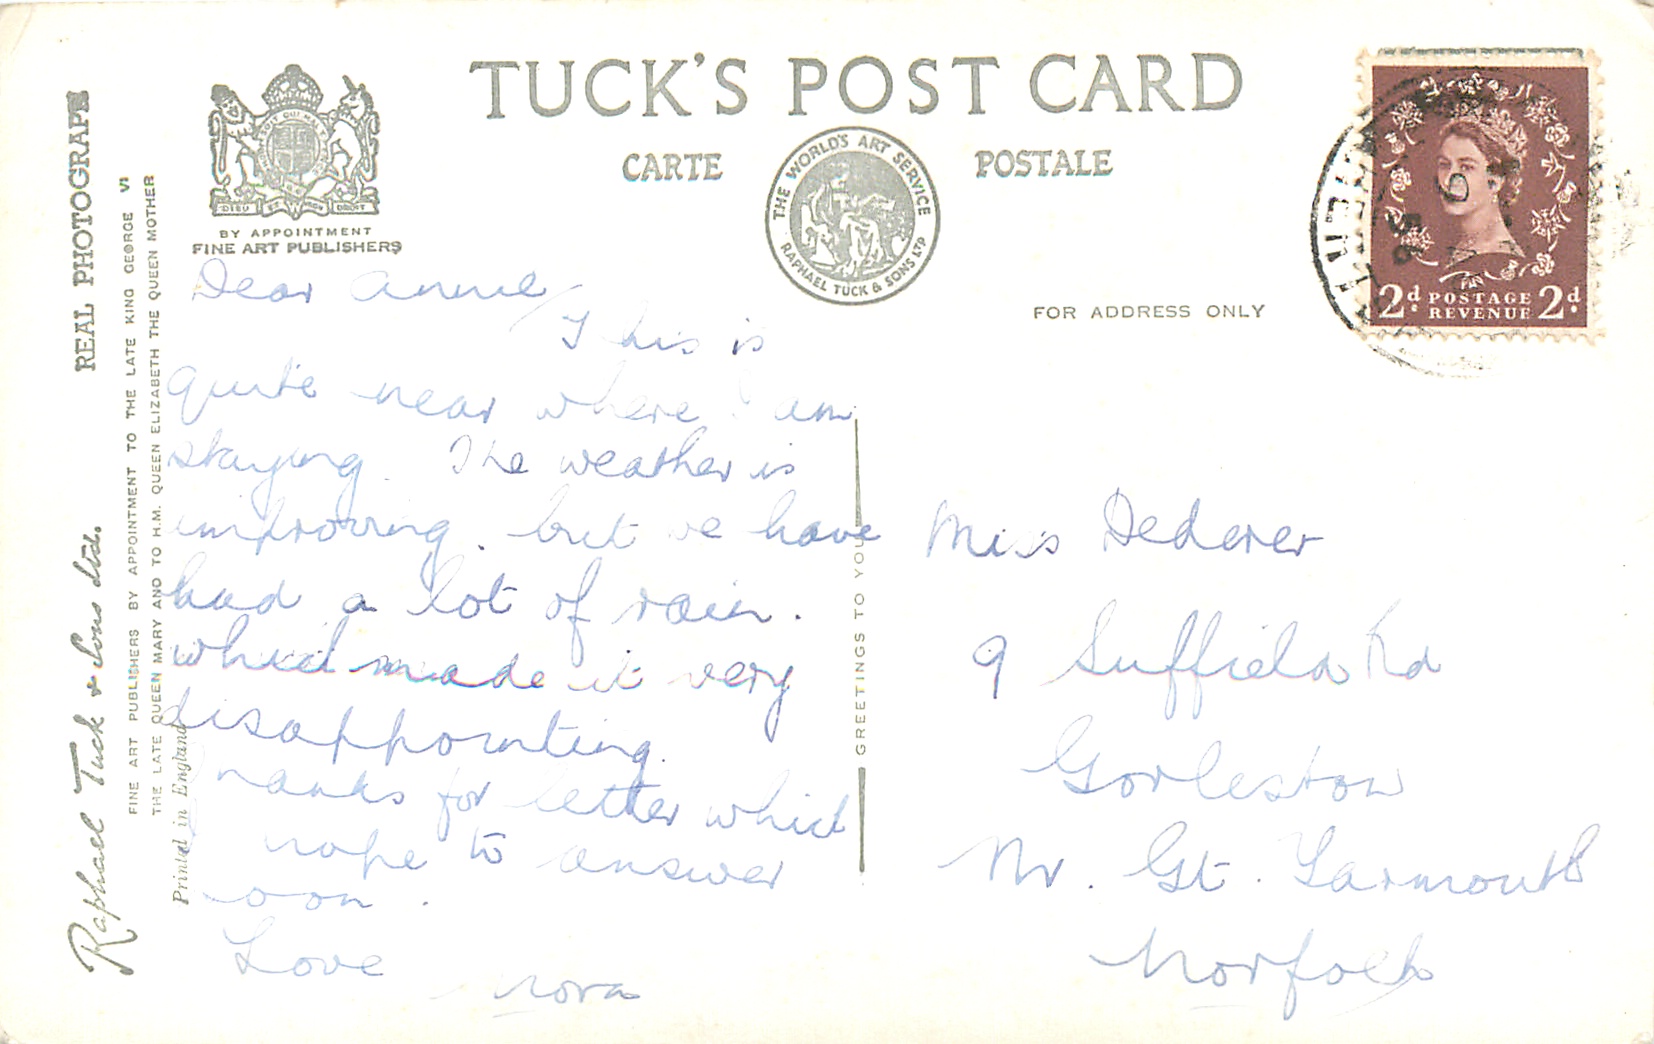 TUCK'S POST CARD
CARTE POSTALE
BY APPOINTMENT
FINE ART PUBLISHERS
DIEU ET MON DROIT
THE WORLD'S ART SERVICE
RAPHAEL TUCK & SONS LTD
FOR ADDRESS ONLY
2d POSTAGE 2d
REVENUE
56
REAL PHOTOGRAPH
Raphael Tuck & Sons Ltd.
FINE ART PUBLISHERS BY APPOINTMENT TO THE LATE KING GEORGE VI
THE LATE QUEEN MARY AND TO H.M. QUEEN ELIZABETH THE QUEEN MOTHER
Printed in England
GREETINGS TO YOU
Dear Annie,
This is
quite near where I am
staying. The weather is
improving. but we have
had a lot of rain.
which made it very
disappointing.
hanks for letter which
hope to answer
oon.
Love
Nora
Miss Dederer
9 Suffield Rd
Gorleston
Nr. Gt. Yarmouth
Norfolk